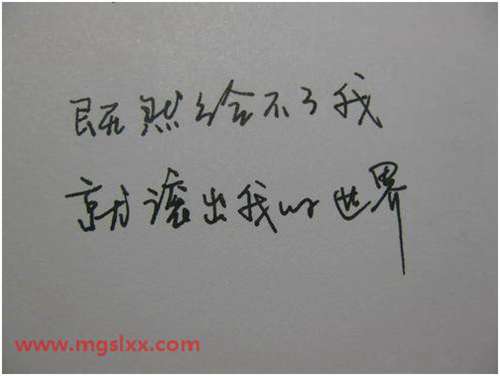 既然给不了我
就滚出我的世界
www.mgslxx.com